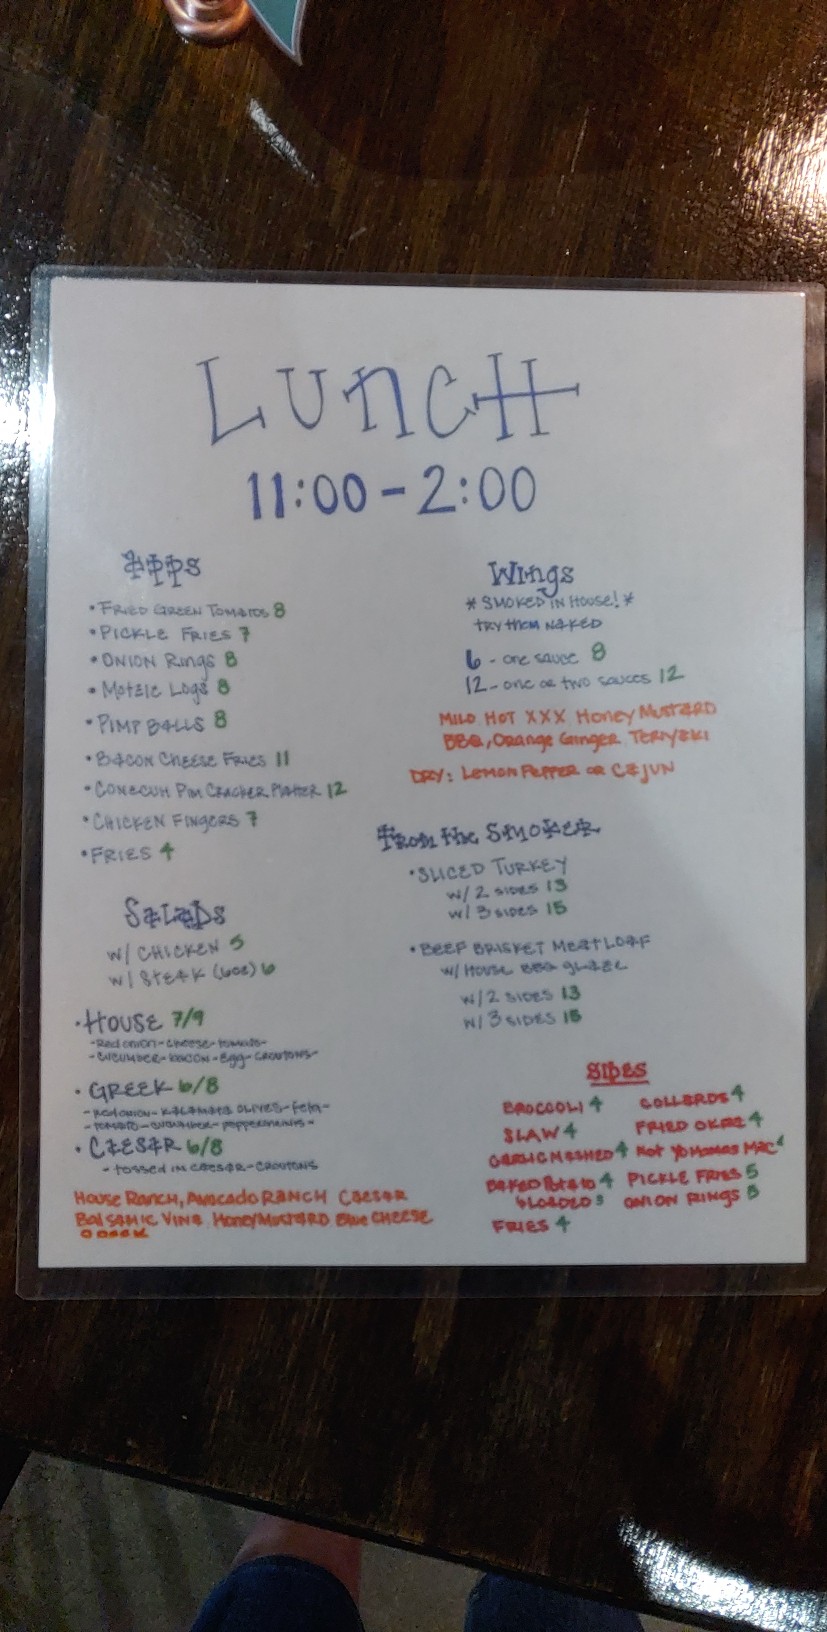 LUNCH
11:00 - 2:00
APPS
• FRIED GREEN TOMATOS 8
• PICKLE FRIES 7
• ONION Rings 8
• MOTZIE LOGS 8
• PIMP BALLS 8
• BACON CHEESE FRIES 11
• CONECUH PIM CRACKER PLATTER 12
• CHICKEN FINGERS 7
• FRIES 4
SALADS
w/ CHICKEN 5
w/ STEAK (6oz) 6
• HOUSE 7/9
- Red onion - cheese - tomato -
- cucumber - bacon - egg - croutons -
• GREEK 6/8
- Red onion - KALAMATA OLIVES - feta -
- tomato - cucumber - pepperoncinis -
• CAESAR 6/8
- TOSSED IN CAESAR - CROUTONS
House Ranch, Avocado RANCH CAESAR
BALSAMIC VINE Honey Mustard Blue CHEESE
Wings
* SMOKED IN HOUSE! *
TRY THEM NAKED
6 - one sauce 8
12 - one or two sauces 12
MILD HOT XXX Honey MUSTARD
BBQ, Orange Ginger TERIYAKI
DRY: LEMON PEPPER OR CAJUN
From the SMOKER
• SLICED TURKEY
w/ 2 SIDES 13
w/ 3 SIDES 15
• BEEF BRISKET MEATLOAF
w/ HOUSE BBQ GLAZE
w/ 2 SIDES 13
w/ 3 SIDES 15
SIDES
BROCCOLI 4 COLLARDS 4
SLAW 4 FRIED OKRA 4
GARLIC MASHED 4 Not Yo Mamas MAC
BAKED POTATO 4 PICKLE FRIES 5
LOADED 3 ONION RINGS 5
FRIES 4